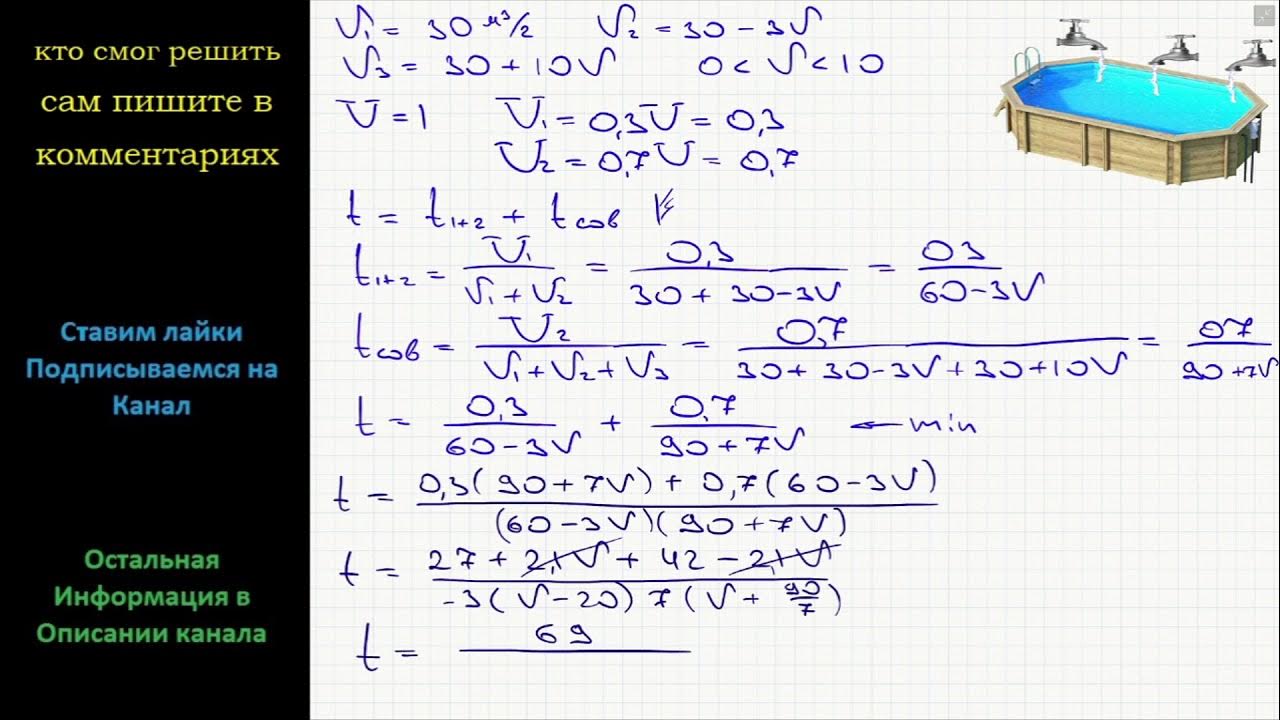 кто смог решить
сам пишите в
комментариях
Ставим лайки
Подписываемся на
Канал
Остальная
Информация в
Описании канала
V₁ = 30 м³/г V₂ = 30 - 3V
V₃ = 30 + 10V 0 < V < 10
V = 1 V₁ = 0,3V = 0,3
V₂ = 0,7V = 0,7
t = t₁₊₂ + tсов
t₁₊₂ = V₁/(V₁ + V₂) = 0,3/(30 + 30 - 3V) = 03/(60 - 3V)
tсов = V₂/(V₁ + V₂ + V₃) = 0,7/(30 + 30 - 3V + 30 + 10V) = 07/(90 + 7V)
t = 0,3/(60 - 3V) + 0,7/(90 + 7V) ← min
t = (0,3(90 + 7V) + 0,7(60 - 3V))/((60 - 3V)(90 + 7V))
t = (27 + 2,1V + 42 - 2,1V)/(-3(V - 20) 7(V + 90/7))
t = 69